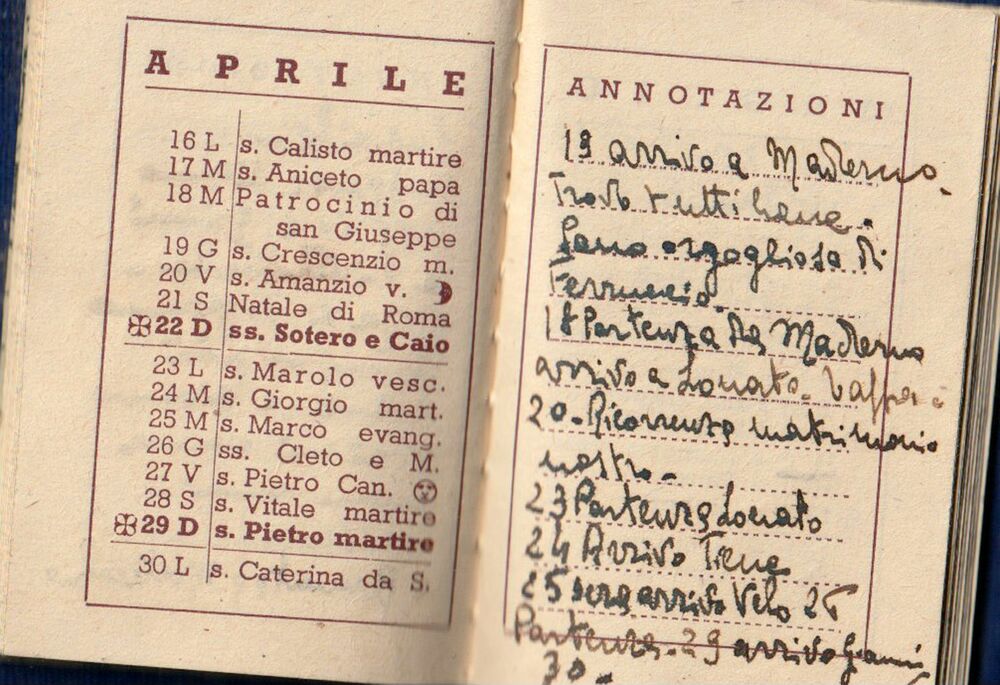 APRILE
16 L s. Calisto martire
17 M s. Aniceto papa
18 M Patrocinio di
san Giuseppe
19 G s. Crescenzio m.
20 V s. Amanzio v.
21 S Natale di Roma
22 D ss. Sotero e Caio
23 L s. Marolo vesc.
24 M s. Giorgio mart.
25 M s. Marco evang.
26 G ss. Cleto e M.
27 V s. Pietro Can.
28 S s. Vitale martire
29 D s. Pietro martire
30 L s. Caterina da S.
ANNOTAZIONI
13 arrivo a Maderno.
Trovo tutti bene.
Sono orgogliosa di
Ferruccio.
18 Partenza da Maderno
arrivo a Lonato.
20 - Ricorrenza matrimonio
nostro -
23 Partenza Lonato
24 Arrivo Tiene
25 sera arrivo Velo 26
Partenza - 29 arrivo Gianni
30 -